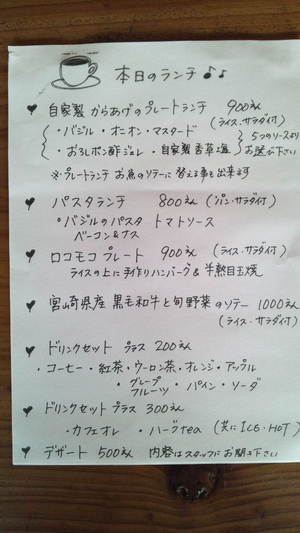 本日のランチ♪♪
♥ 自家製 からあげのプレートランチ 900えん
(ライス・サラダ付)
・バジル・オニオン・マスタード
・おろしポン酢ジュレ・自家製香草塩
5つのソースより
お選び下さい
※プレートランチ お魚のソテーに替える事も出来ます
♥ パスタランチ 800えん (パン・サラダ付)
バジルのパスタ トマトソース
ベーコン&ナス
♥ ロコモコプレート 900えん (ライス・サラダ付)
ライスの上に手作りハンバーグ&半熟目玉焼
♥ 宮崎県産 黒毛和牛と旬野菜のソテー 1000えん
(ライス・サラダ付)
♥ ドリンクセット プラス 200えん
・コーヒー・紅茶・ウーロン茶・オレンジ・アップル
・グレープフルーツ・パイン・ソーダ
♥ ドリンクセットプラス 300えん
・カフェオレ ・ハーブtea (共に ICE・HOT)
♥ デザート 500えん 内容はスタッフにお聞き下さい